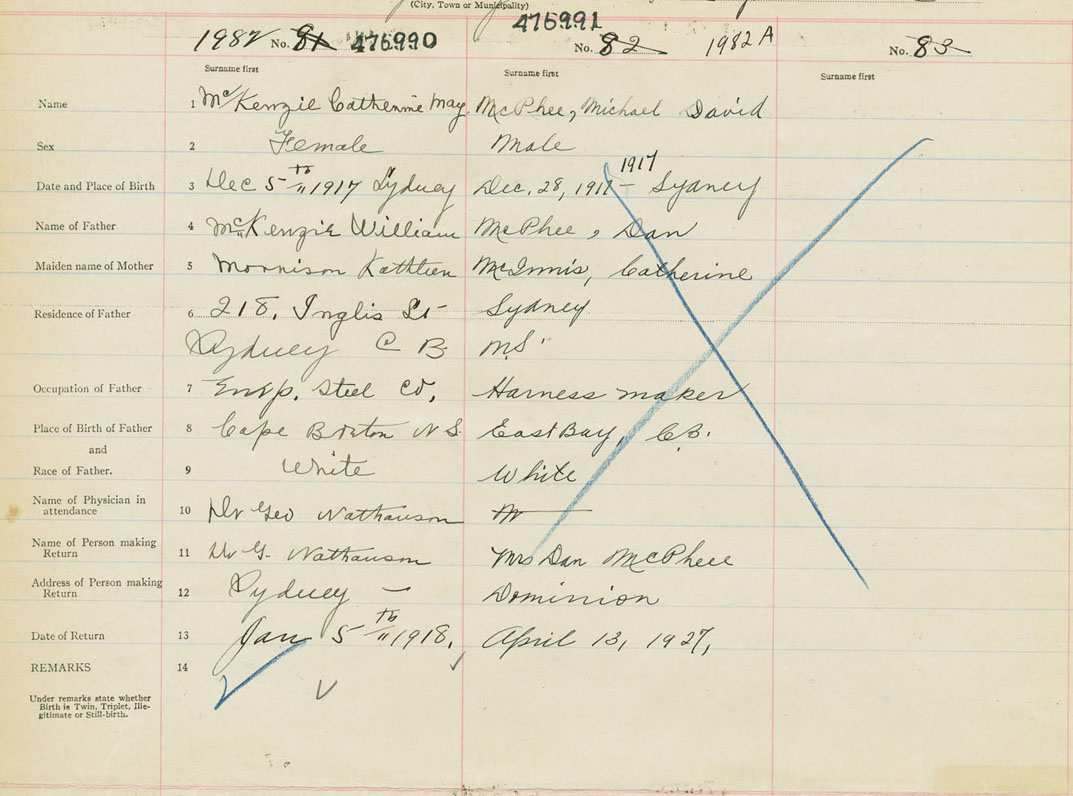 (City, Town or Municipality)
1982 No. 81 476990
476991
No. 82 1982 A
No. 83
Surname first
Surname first
Surname first
Name 1 McKenzie Catherine May McPhee, Michael David
Sex 2 Female Male
Date and Place of Birth 3 Dec 5th 1917 Sydney Dec. 28, 1917 - 1917 Sydney
Name of Father 4 McKenzie William McPhee, Dan
Maiden name of Mother 5 Morrison Kathleen McInnis, Catherine
Residence of Father 6 218, Inglis St Sydney
Sydney C B N.S.
Occupation of Father 7 Emp. Steel Co, Harness maker
Place of Birth of Father 8 Cape Breton N S. East Bay, C.B.
and
Race of Father. 9 White White
Name of Physician in
attendance 10 Dr Geo Nathanson
Name of Person making
Return 11 Dr G. Nathanson Mrs Dan McPhee
Address of Person making
Return 12 Sydney — Dominion
Date of Return 13 Jan 5th 1918. April 13, 1927,
REMARKS 14
Under remarks state whether
Birth is Twin, Triplet, Ille-
gitimate or Still-birth.